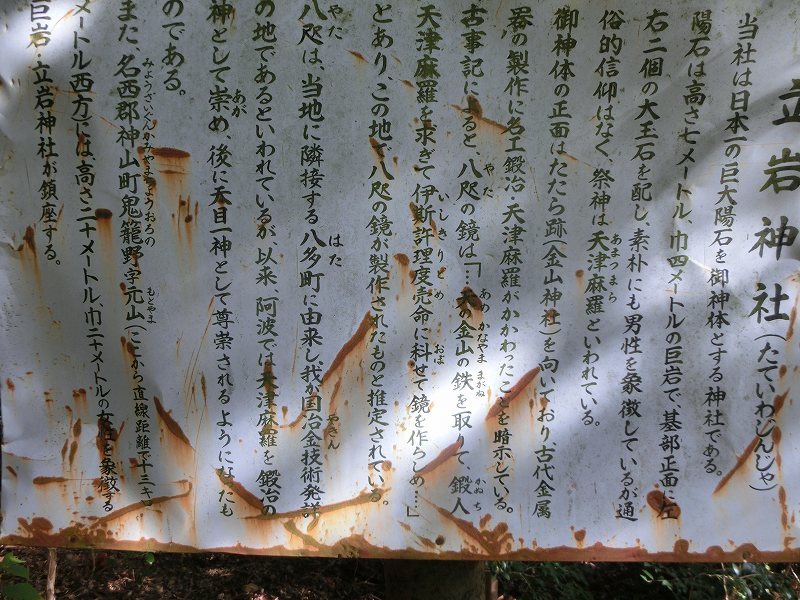 立岩神社(たていわじんじゃ)
当社は日本一の巨大陽石を御神体とする神社である。
陽石は高さ七メートル、巾四メートルの巨岩で、基部正面に左
右二個の大玉石を配し、素朴にも男性を象徴しているが通
俗的信仰はなく、祭神は天津麻羅といわれている。
あまつまら
御神体の正面はたたら跡(金山神社)を向いており古代金属
器の製作に名工鍛冶、天津麻羅がかかわったことを暗示している。
古事記によると八咫の鏡は「…天の金山の鉄を取りて、鍛人
やた あ かなやま まがね かぬち
天津麻羅を求ぎて伊斯許理度売命に科せて鏡を作らしめ…」
いしきりどめ おほ
とあり、この地で八咫の鏡が製作されたものと推定されている。
八咫は、当地に隣接する八多町に由来し我が国冶金技術発祥
やた はた
の地であるといわれているが、以来、阿波では天津麻羅を鍛冶の
神として崇め、後に天目一神として尊崇されるようになったも
あが
のである。
また、名西郡神山町鬼籠野字元山(ここから直線距離で十三キロ
みようざいぐんかみやまちようおろの もとやま
メートル西方)には高さ二十メートル、巾二十メートルの女性を象徴する
巨岩・立岩神社が鎮座する。